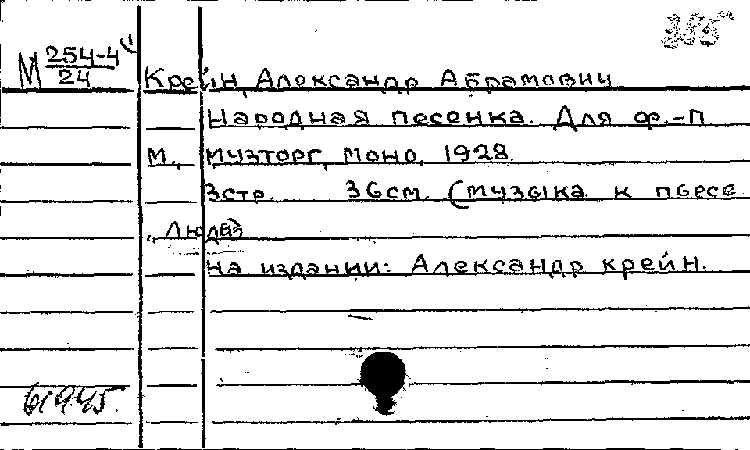 385
М 254-4
24
Крейн, Александр Абрамович
Народная песенка. Для ф.-п
М., Музторг, Моно, 1928.
3стр. 36см. (Музыка к пьесе
"Людав)
На издании: Александр Крейн.
61945.